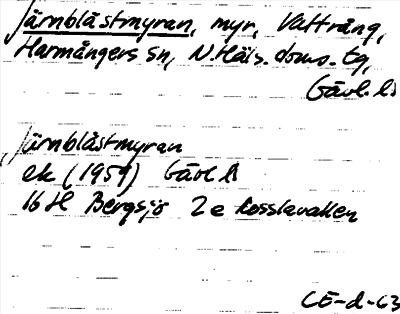 Järnblästmyran, myr, Vattrång,
Harmångers sn, N. Häls. doms. tg,
Gävl. ls
Järnblästmyran
ek (1959) Gävl ls
16 H Bergsjö 2 e Rosslavallen
CE-d-63